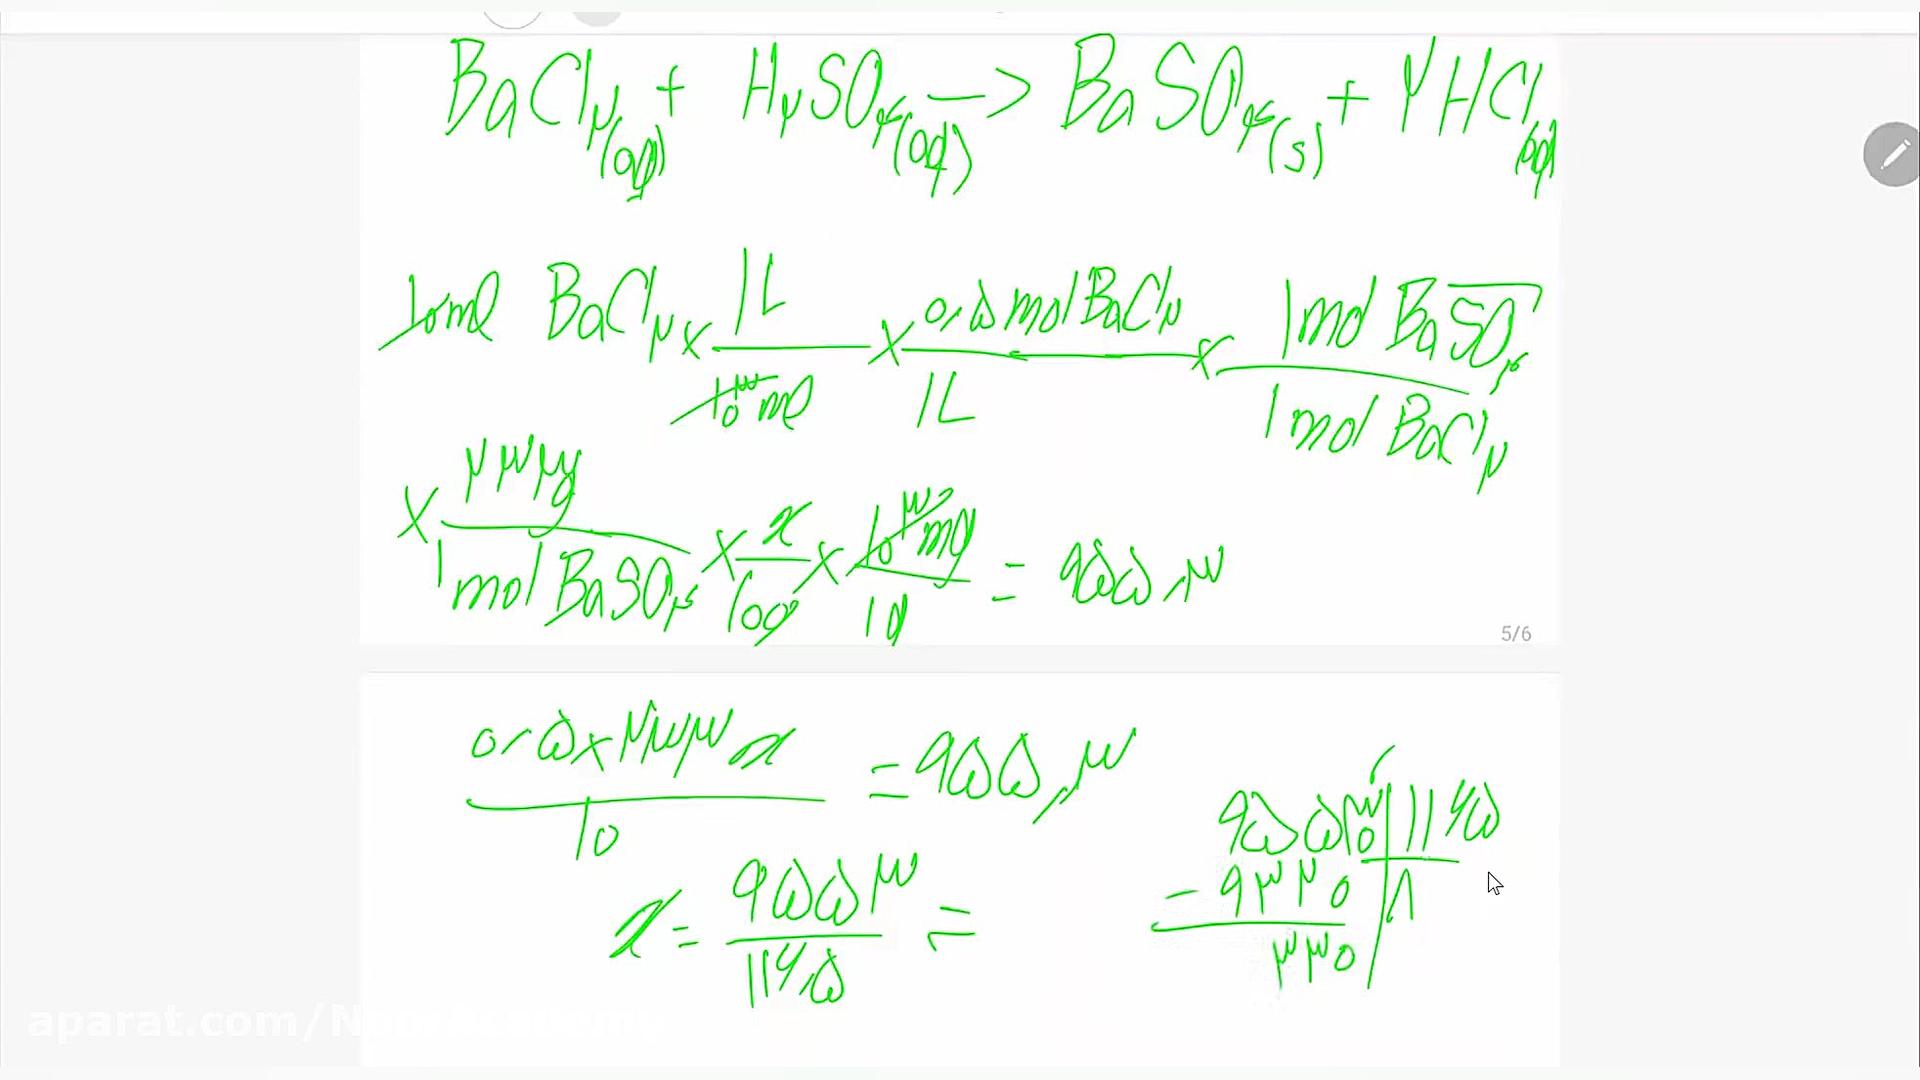 BaCl۲(aq) + H۲SO۴(aq) → BaSO۴(s) + ۲HCl(aq)
۱۰ml BaCl۲ × ۱L / ۱۰^۳ ml × ۰٫۵ mol BaCl۲ / ۱L × ۱mol BaSO۴ / ۱mol BaCl۲
× ۲۳۳g / ۱mol BaSO۴ × x / ۱۰۰ × ۱۰^۳ mg / ۱g = ۹۵۵٫۳
5/6
۰٫۵ × ۲۳۳ x / ۱۰ = ۹۵۵٫۳
x = ۹۵۵۳ / ۱۱۶٫۵ =
۹۵۵۳۰ | ۱۱۶۵
- ۹۳۲۰ | ۸
۲۳۰
aparat.com/